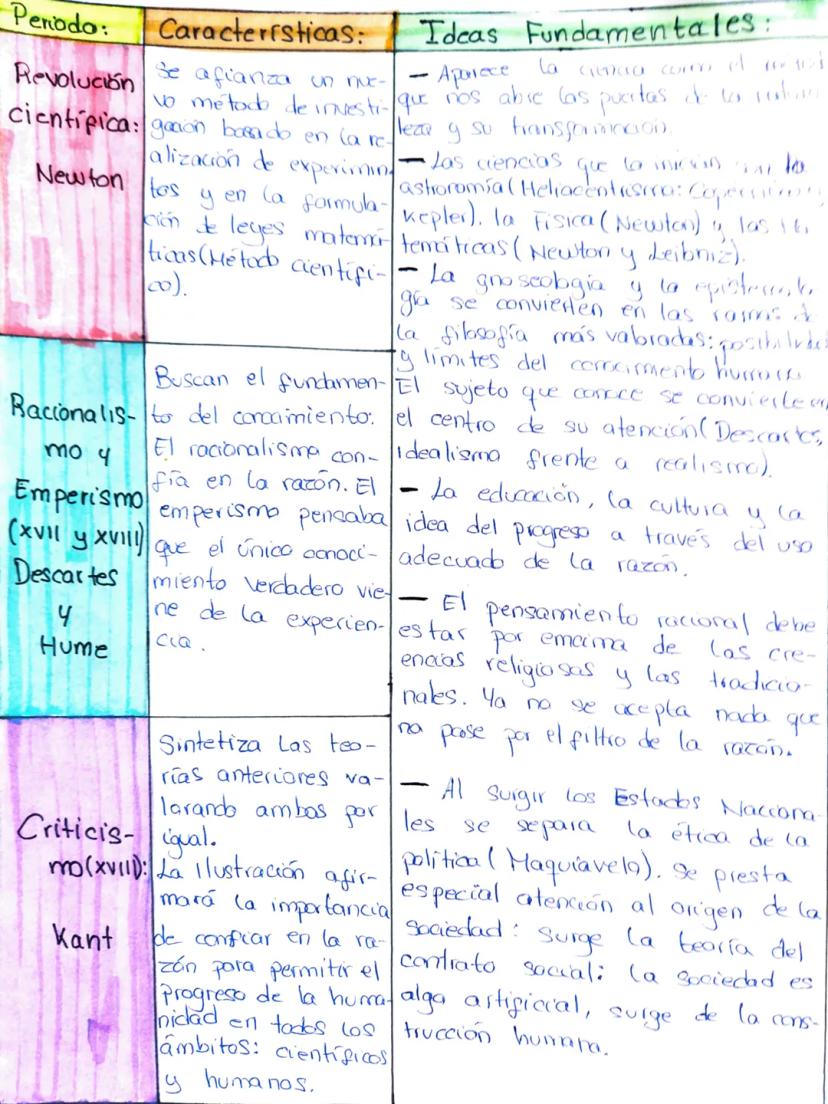 Periodo:
Características:
Ideas Fundamentales:
Revolución
científica:
Newton
Se afianza un nue-
vo método de investi-
gación basado en la re-
alización de experimin
tos y en la formula-
ción de leyes matemá-
ticas (Método científi-
co).
Racionalis-
mo y
Emperismo
(XVII y XVIII)
Descartes
y
Hume
Buscan el fundamen-
to del conocimiento:
El racionalismo con-
fía en la razón. El
emperismo pensaba
que el único conoci-
miento verdadero vie-
ne de la experien-
cia.
Criticis-
mo (XVII):
Kant
Sintetiza las teo-
rías anteriores va-
lorando ambos por
igual.
La Ilustración afir-
mará la importancia
de confiar en la ra-
zón para permitir el
progreso de la huma-
nidad en todos los
ámbitos: científicos
y humanos.
— Aparece la ciencia como el
que nos abre las puertas de la
leza y su transformación.
— Las ciencias que la inician son la
astronomía (Heliocentrismo:
Kepler). la Física (Newton) y las
temáticas (Newton y Leibniz).
— La gnoseología y la
gía se convierten en las ramas de
la filosofía más valoradas:
y límites del conocimiento humano
El sujeto que conoce se convierte en
el centro de su atención (Descartes,
idealismo frente a realismo).
— La educación, la cultura y la
idea del progreso a través del uso
adecuado de la razón.
— El pensamiento racional debe
estar por emcima de las cre-
encias religiosas y las tradicio-
nales. Ya no se acepta nada que
no pase por el filtro de la razón.
— Al surgir los Estados Naciona-
les se separa la ética de la
política (Maquiavelo). Se presta
especial atención al origen de la
sociedad: surge la teoría del
contrato social: la sociedad es
algo artificial, surge de la cons-
trucción humana.